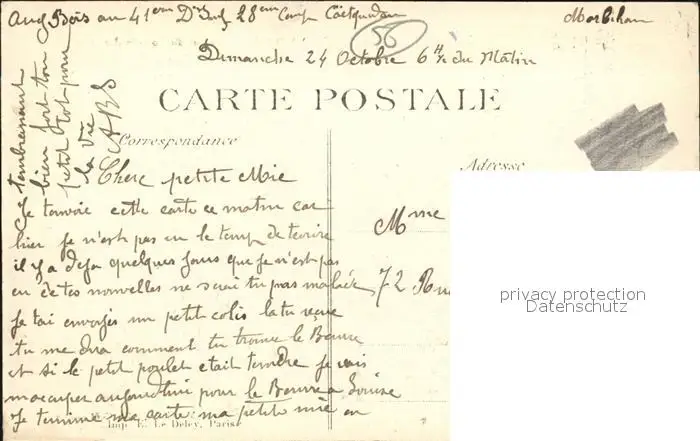 Aug Bois au 41em Dr Inf 28em Comp Coëtquidan
Morbihan
56
Dimanche 24 Octobre 6 H ½ du Mâtin
CARTE POSTALE
Correspondance
Adresse
Chere petite Mie
Je tenvoie cette carte ce matin car
hier Je n'est pas eu le temp de tecrire
il y a deja quelques Jours que Je n'est pas
eu de tes nouvelles ne serai tu pas malade
Je tai envoyes un petit colis la tu reçue
tu me dira comment tu trouve le Beurre
et si le petit poulet etait tendre Je vais
moccuper aujourdhui pour le Beurre a Louise
Je termine ma carte ma petite mie en
tembrassant
bien fort ton
petit Tot pour
la vie
ABS
Mme
72 Rue
Imp. E. Le Deley, Paris
privacy protection
Datenschutz